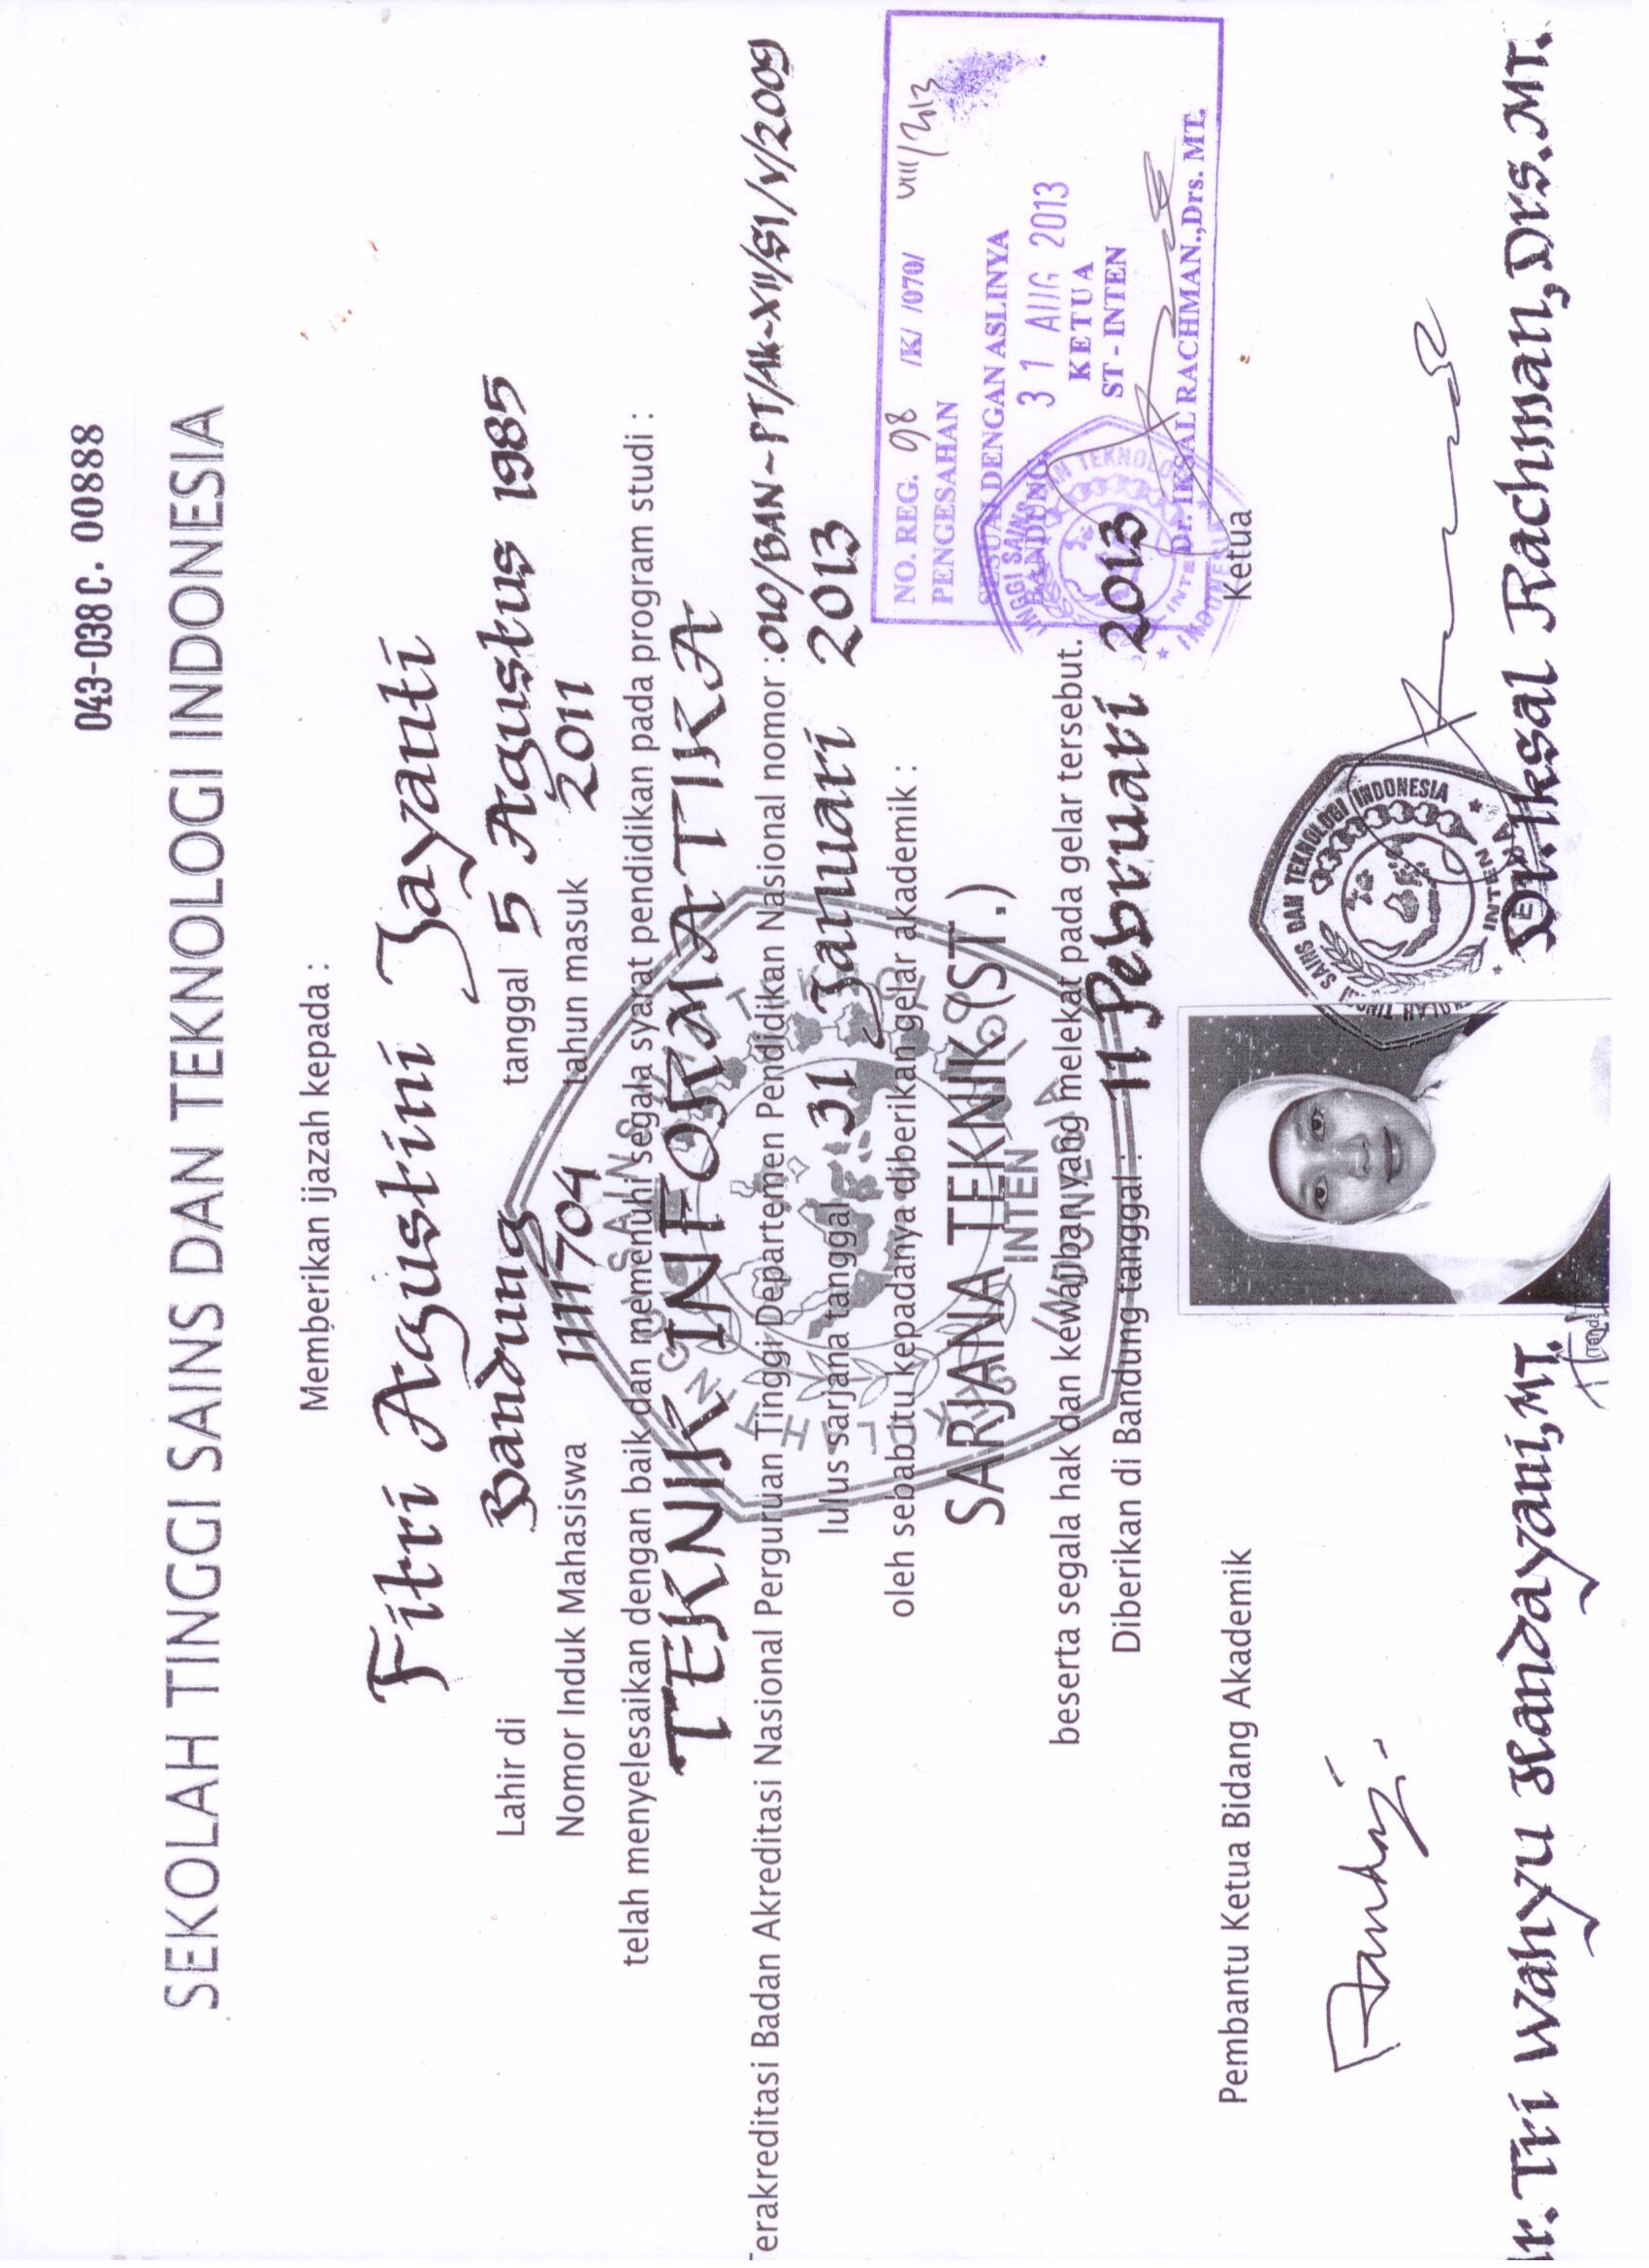 043-038 C. 00888
SEKOLAH TINGGI SAINS DAN TEKNOLOGI INDONESIA
Memberikan ijazah kepada :
Fitri Agustini Jayanti
Lahir di Bandung tanggal 5 Agustus 1985
Nomor Induk Mahasiswa 1111704 tahun masuk 2011
telah menyelesaikan dengan baik dan memenuhi segala syarat pendidikan pada program studi :
TEKNIK INFORMATIKA
Terakreditasi Badan Akreditasi Nasional Perguruan Tinggi Departemen Pendidikan Nasional nomor : 010/BAN-PT/Ak-XII/S1/V/2009
lulus sarjana tanggal 31 Januari 2013
oleh sebab itu kepadanya diberikan gelar akademik :
SARJANA TEKNIK (ST.)
beserta segala hak dan kewajiban yang melekat pada gelar tersebut.
Diberikan di Bandung tanggal : 11 Pebruari 2013
SEKOLAH TINGGI SAINS DAN TEKNOLOGI
INTEN
INDONESIA
NO. REG. 98 /K/ /070/ VIII/2013
PENGESAHAN
SESUAI DENGAN ASLINYA
BANDUNG, 31 AUG 2013
KETUA
ST - INTEN
Dr. IKSAL RACHMAN.,Drs. MT.
TINGGI SAINS DAN TEKNOLOGI
INTEN
INDONESIA
Pembantu Ketua Bidang Akademik
Ketua
SAINS DAN TEKNOLOGI INDONESIA
INTEN
Ir. Tri Wahyu Handayani, MT.
Dr. Iksal Rachman, Drs. MT.
(Tanda